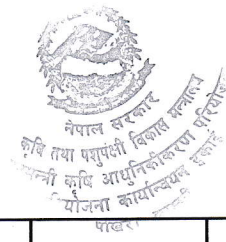 नेपाल सरकार
कृषि तथा पशुपंक्षी विकास मन्त्रालय
कृषि आधुनिकीकरण परियोजना
कार्यान्वयन इकाई
पोखरा